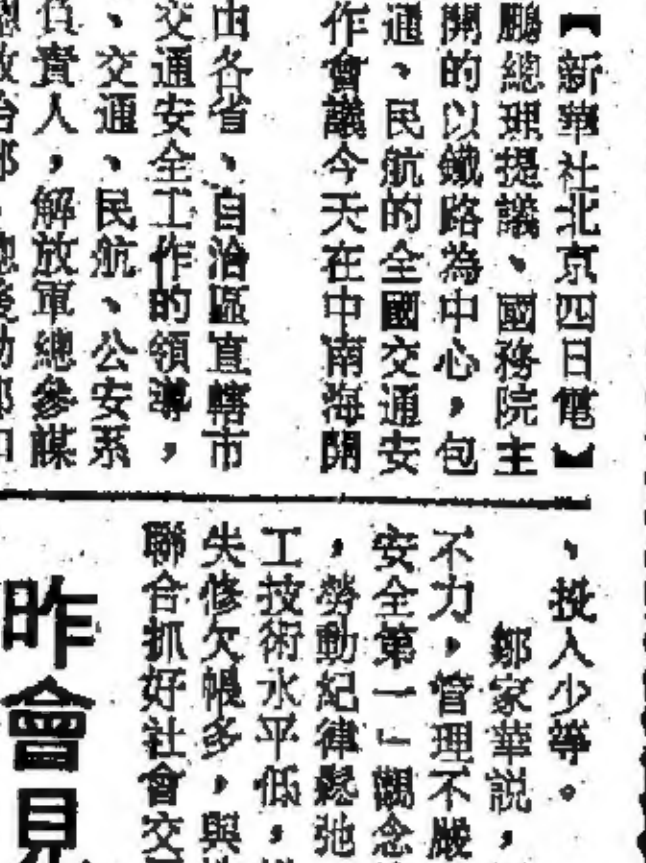 【新華社北京四日電】
鵬總理提議、國務院主
開的以鐵路為中心,包
通、民航的全國交通安
作會議今天在中南海開
由各省、自治區直轄市
交通安全工作的領導,
、交通、民航、公安系
負責人,解放軍總參謀
、投入少等。
鄒家華説,
不力,管理不嚴
安全第一」觀念
,勞動紀律鬆弛
工技術水平低,
失修欠帳多,與
聯合抓好社會交
昨會見